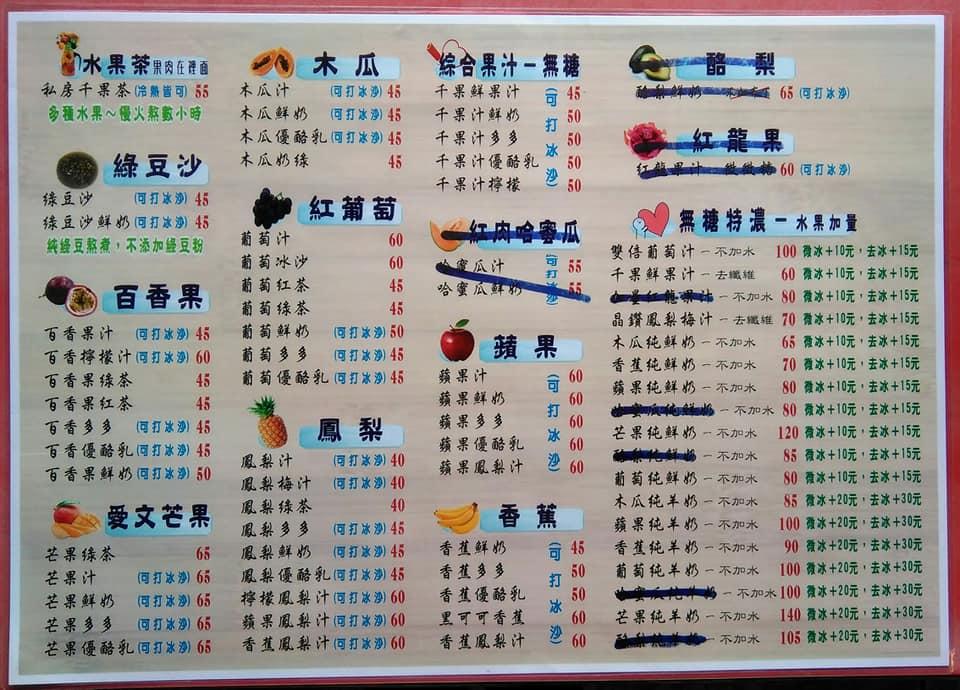 水果茶果肉在裡面
私房千果茶(冷熱皆可) 55
多種水果～慢火熬數小時
綠豆沙
綠豆沙 (可打冰沙) 45
綠豆沙鮮奶(可打冰沙) 45
純綠豆熬煮，不添加綠豆粉
百香果
百香果汁 (可打冰沙) 45
百香檸檬汁(可打冰沙) 60
百香果綠茶 45
百香果紅茶 45
百香多多 (可打冰沙) 45
百香優酪乳(可打冰沙) 45
百香果鮮奶(可打冰沙) 50
愛文芒果
芒果綠茶 65
芒果汁 (可打冰沙) 65
芒果鮮奶 (可打冰沙) 65
芒果多多 (可打冰沙) 65
芒果優酪乳(可打冰沙) 65
木瓜
木瓜汁 (可打冰沙) 45
木瓜鮮奶 (可打冰沙) 45
木瓜優酪乳(可打冰沙) 45
木瓜奶綠 45
紅葡萄
葡萄汁 60
葡萄冰沙 60
葡萄紅茶 45
葡萄綠茶 45
葡萄鮮奶 (可打冰沙) 50
葡萄多多 (可打冰沙) 45
葡萄優酪乳(可打冰沙) 45
鳳梨
鳳梨汁 (可打冰沙) 40
鳳梨梅汁 (可打冰沙) 40
鳳梨綠茶 40
鳳梨多多 (可打冰沙) 45
鳳梨鮮奶 (可打冰沙) 45
鳳梨優酪乳(可打冰沙) 45
檸檬鳳梨汁(可打冰沙) 60
蘋果鳳梨汁(可打冰沙) 60
香蕉鳳梨汁(可打冰沙) 60
綜合果汁－無糖
千果鮮果汁 45
千果汁鮮奶 50
千果汁多多 50
千果汁優酪乳 50
千果汁檸檬 50
(可打冰沙)
紅肉哈蜜瓜
哈蜜瓜汁 55
哈蜜瓜鮮奶 55
(可打冰沙)
蘋果
蘋果汁 60
蘋果鮮奶 60
蘋果多多 60
蘋果優酪乳 60
蘋果鳳梨汁 60
(可打冰沙)
香蕉
香蕉鮮奶 45
香蕉多多 50
香蕉優酪乳 50
黑可可香蕉 60
香蕉鳳梨汁 60
(可打冰沙)
酪梨
酪梨鮮奶 65 (可打冰沙)
紅龍果
紅龍果汁－微微糖 60 (可打冰沙)
無糖特濃－水果加量
雙倍葡萄汁－不加水 100 微冰+10元，去冰+15元
千果鮮果汁－去纖維 60 微冰+10元，去冰+15元
紅龍果汁－不加水 80 微冰+10元，去冰+15元
晶鑽鳳梨梅汁－去纖維 70 微冰+10元，去冰+15元
木瓜純鮮奶－不加水 65 微冰+10元，去冰+15元
香蕉純鮮奶－不加水 70 微冰+10元，去冰+15元
蘋果純鮮奶－不加水 80 微冰+10元，去冰+15元
哈蜜瓜純鮮奶－不加水 80 微冰+10元，去冰+15元
芒果純鮮奶－不加水 120 微冰+10元，去冰+15元
酪梨純鮮奶－不加水 85 微冰+10元，去冰+15元
葡萄純鮮奶－不加水 80 微冰+10元，去冰+15元
木瓜純羊奶－不加水 85 微冰+20元，去冰+30元
蘋果純羊奶－不加水 100 微冰+20元，去冰+30元
香蕉純羊奶－不加水 90 微冰+20元，去冰+30元
葡萄純羊奶－不加水 100 微冰+20元，去冰+30元
哈蜜瓜純羊奶－不加水 100 微冰+20元，去冰+30元
芒果純羊奶－不加水 140 微冰+20元，去冰+30元
酪梨純羊奶－不加水 105 微冰+20元，去冰+30元